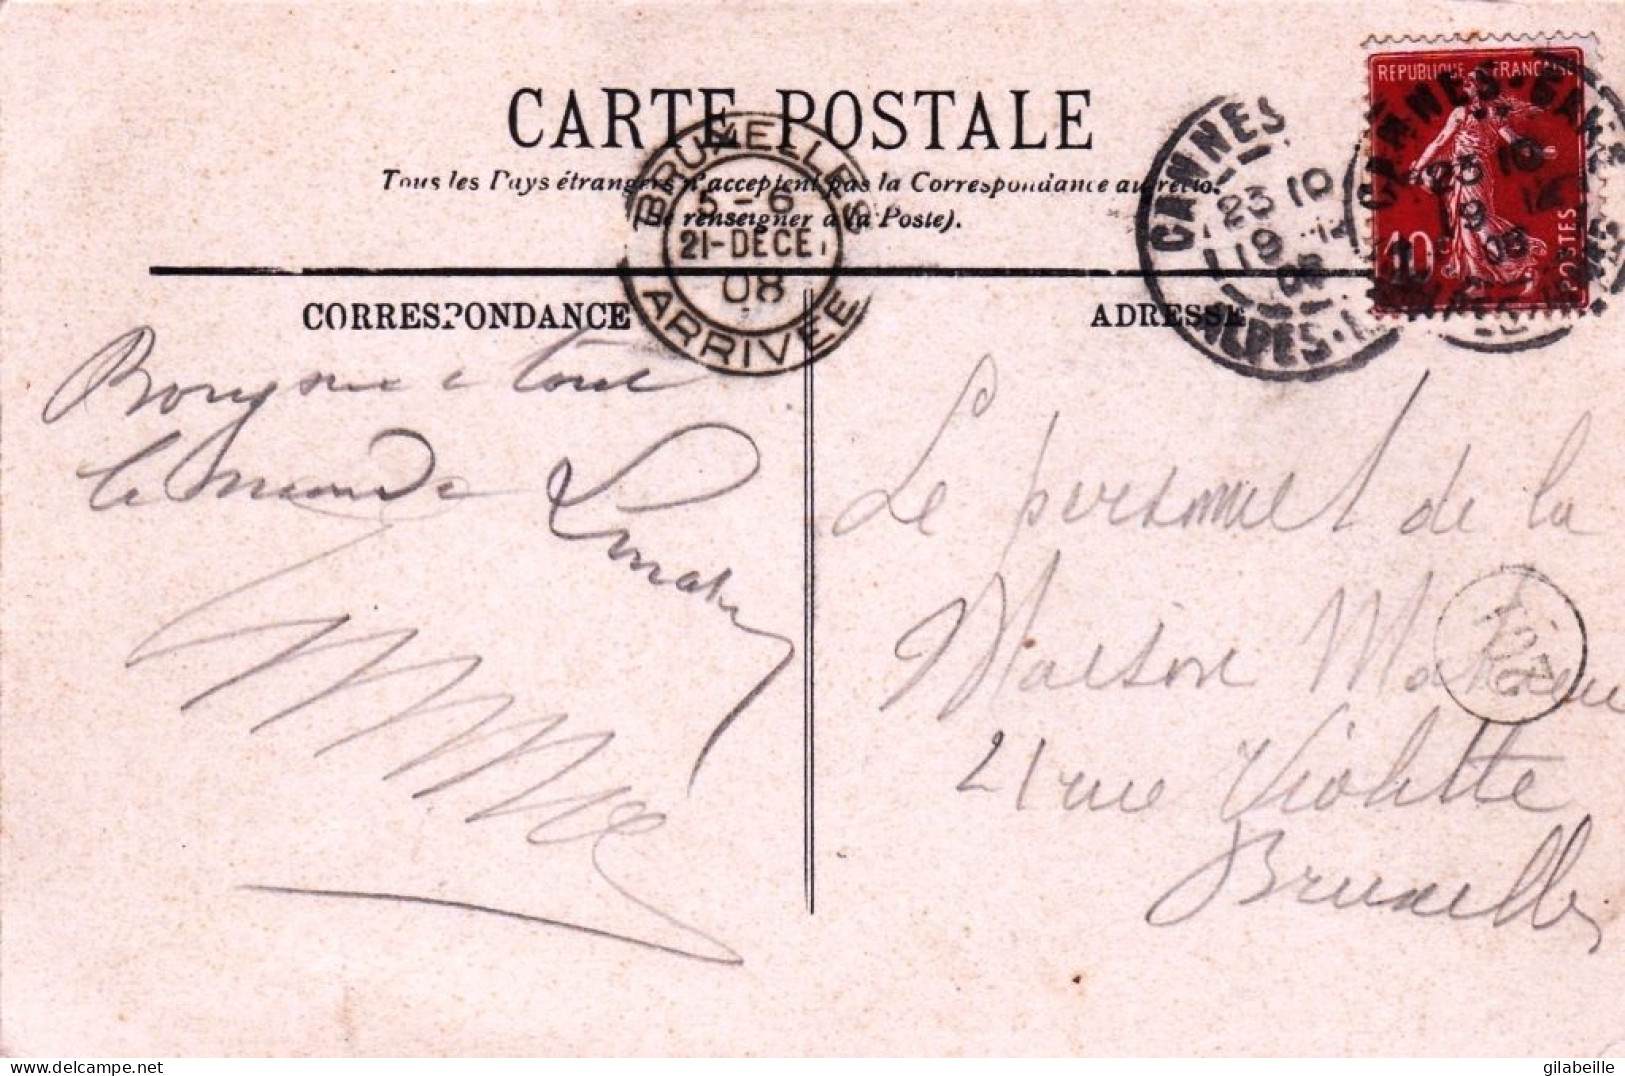 CARTE POSTALE
Tous les Pays étrangers n'acceptent pas la Correspondance au recto.
(Se renseigner à la Poste).
CORRESPONDANCE
ADRESSE
BRUXELLES
5-6
21-DECE
08
ARRIVEE
CANNES
23 10
19 12
08
ALPES
REPUBLIQUE FRANÇAISE
10
POSTES
CANNES
23 10
19 12
08
à tout
le monde
Le personnel de la
Maison
21 rue Violette
Bruxelles
gilabeille